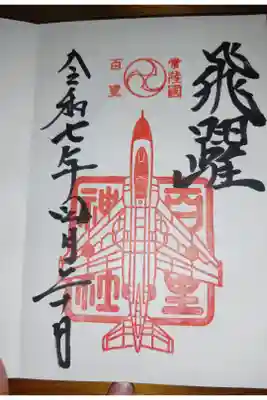 飛躍
常陸國
百里
百里
神社
令和七年四月 十日